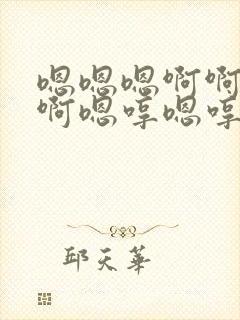 嗯嗯嗯啊啊
啊嗯哼嗯哼
邱天华